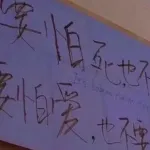 要怕死,也不
要怕爱,也不要